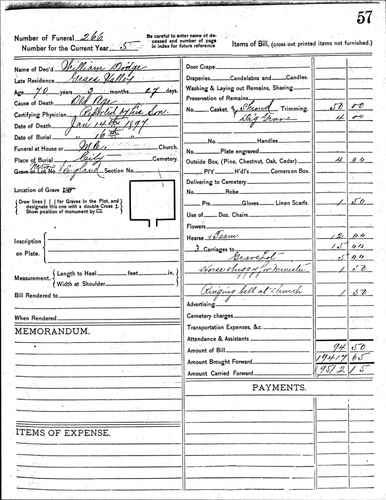 57
Number of Funeral 266
Number for the Current Year 5
Be carefull to enter name of deceased and number of page in index for future reference
Items of Bill, (cross out printed items not furnished.)
Name of Dec'd William Dodge
Late Residence Grass Valley
Age 70 years 3 months 27 days.
Cause of Death Old Age
Certifying Physician
Date of Death Jan 14th 1897
Date of Burial " 16th "
Funeral at House or M.E. Church.
Place of Burial City Cemetery.
Grave or Lot No. Section No.
Native England
Location of Grave
Draw lines [ ] for Graves in the Plot, and designate this one with a double Cross
Show position of monument by
Inscription
on Plate.
Measurement. Length to Heel feet in.
Width at Shoulder
Bill Rendered to
When Rendered
MEMORANDUM.
ITEMS OF EXPENSE.
Door Crape
Draperies. Candelabra and Candles.
Washing & Laying out Remains, Shaving
Preservation of Remains
No. Casket, & Shroud Trimming. 50 00
Dig Grave 4 00
No. Handles
Plate engraved
Outside Box, (Pine, Chestnut, Oak, Cedar) 4 00
P/Y H'd's Corners on Box.
Delivering to Cemetery
No. Robe
Prs. Gloves Linen Scarfs. 1 50
Use of Doz. Chairs
Flowers
Hearse & Team 12 00
3 Carriages to 15 00
5 00
Horse & buggy for Minister 1 50
Ringing bell at Church 1 50
Advertising
Cemetery charges
Transportation Expenses, &c.
Attendance & Assistants
Amount of Bill 94 50
Amount Brought Forward 19417 65
Amount Carried Forward 19512 15
PAYMENTS.